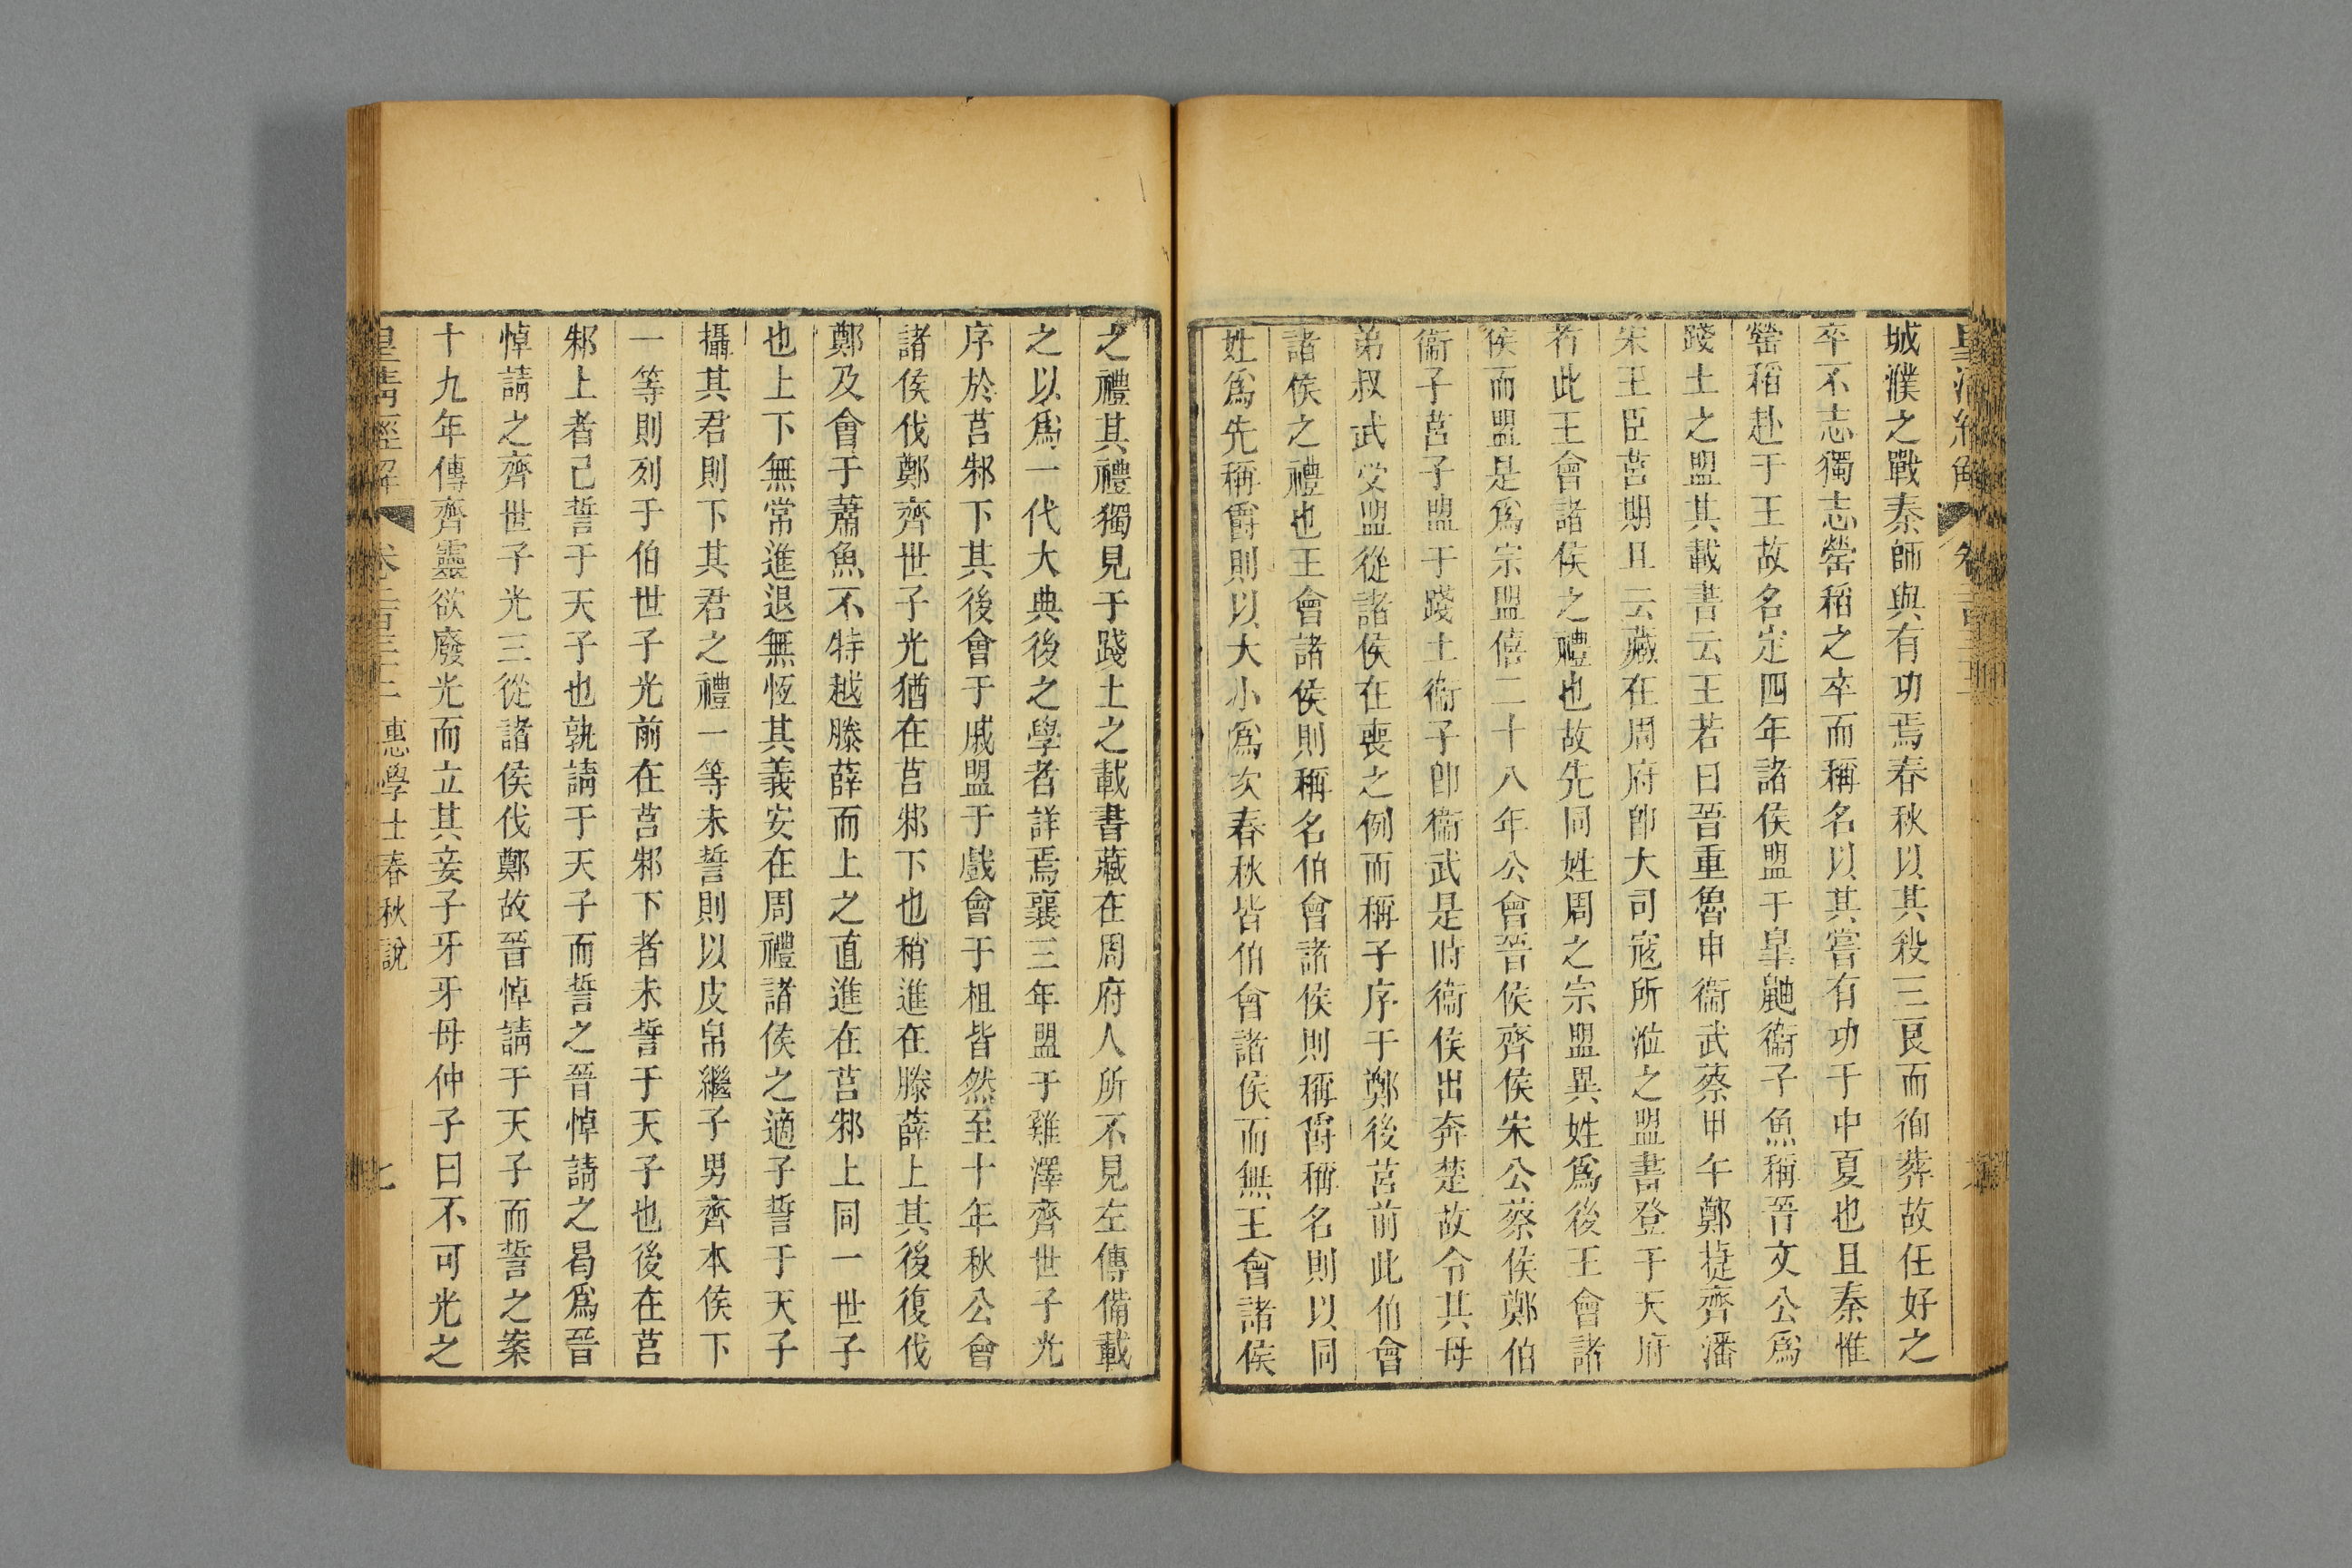 城濮之戰秦師與有功焉春秋以其殺三良而徇葬故任好之
卒不志獨志罃稻之卒而稱名以其嘗有功于中夏也且秦惟
罃稻赴于王故名定四年諸侯盟于皐鼬衞子魚稱晉文公爲
踐土之盟其載書云王若曰晉重魯申衞武蔡甲午鄭捷齊潘
宋王臣莒期且云藏在周府卽大司寇所涖之盟書登于天府
者此王會諸侯之禮也故先同姓周之宗盟異姓爲後王會諸
侯而盟是爲宗盟僖二十八年公會晉侯齊侯宋公蔡侯鄭伯
衞子莒子盟于踐土衞子卽衞武是時衞侯出奔楚故令其母
弟叔武受盟從諸侯在喪之例而稱子序于鄭後莒前此伯會
諸侯之禮也王會諸侯則稱名伯會諸侯則稱爵稱名則以同
姓爲先稱爵則以大小爲次春秋皆伯會諸侯而無王會諸侯
之禮其禮獨見于踐土之載書藏在周府人所不見左傳備載
之以爲一代大典後之學者詳焉襄三年盟于雞澤齊世子光
序於莒邾下其後會于戚盟于戲會于柤皆然至十年秋公會
諸侯伐鄭齊世子光猶在莒邾下也稍進在滕薛上其後復伐
鄭及會于蕭魚不特越滕薛而上之直進在莒邾上同一世子
也上下無常進退無恆其義安在周禮諸侯之適子誓于天子
攝其君則下其君之禮一等未誓則以皮帛繼子男齊本侯下
一等則列于伯世子光前在莒邾下者未誓于天子也後在莒
邾上者已誓于天子也孰請于天子而誓之晉悼請之曷爲晉
悼請之齊世子光三從諸侯伐鄭故晉悼請于天子而誓之案
十九年傳齊靈欲廢光而立其妾子牙牙母仲子曰不可光之
皇淸經解 惠學士春秋說 七